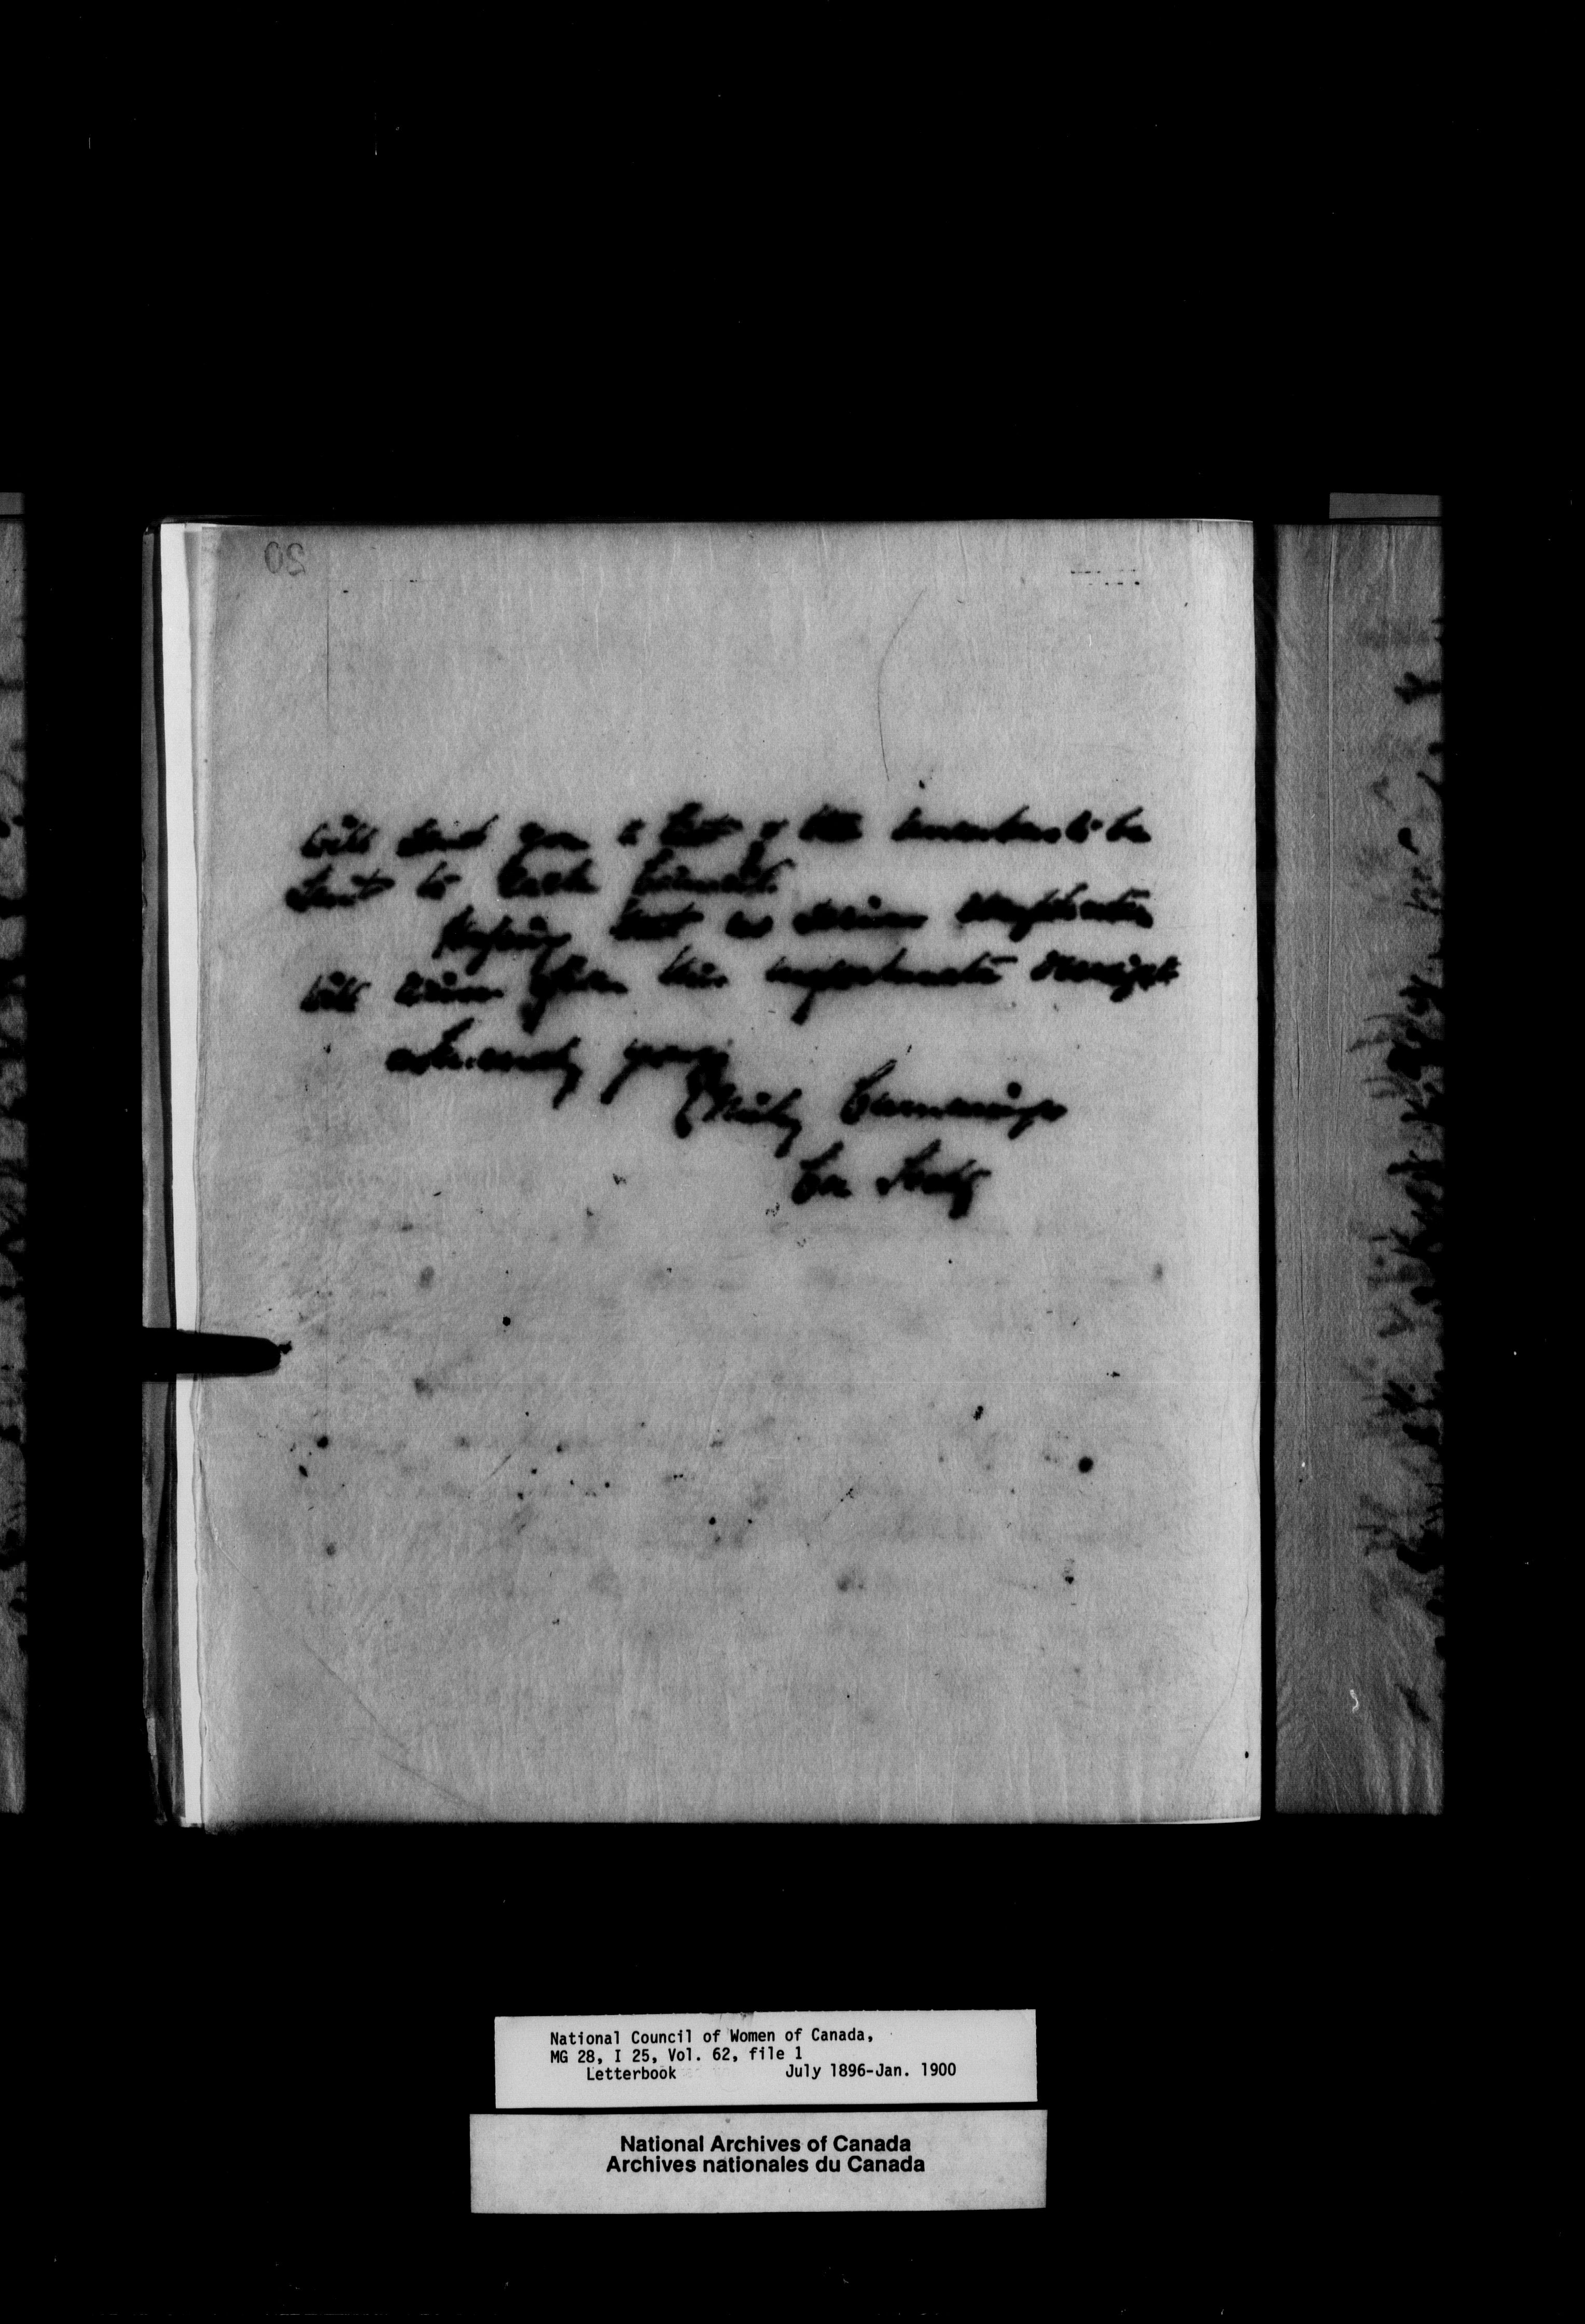 20
will send you a list of the numbers to be
sent to each Council.
Hoping that no serious
will this unfortunate
yours
Emily Cummings
Cor Secty
National Council of Women of Canada,
MG 28, I 25, Vol. 62, file 1
Letterbook July 1896-Jan. 1900
National Archives of Canada
Archives nationales du Canada